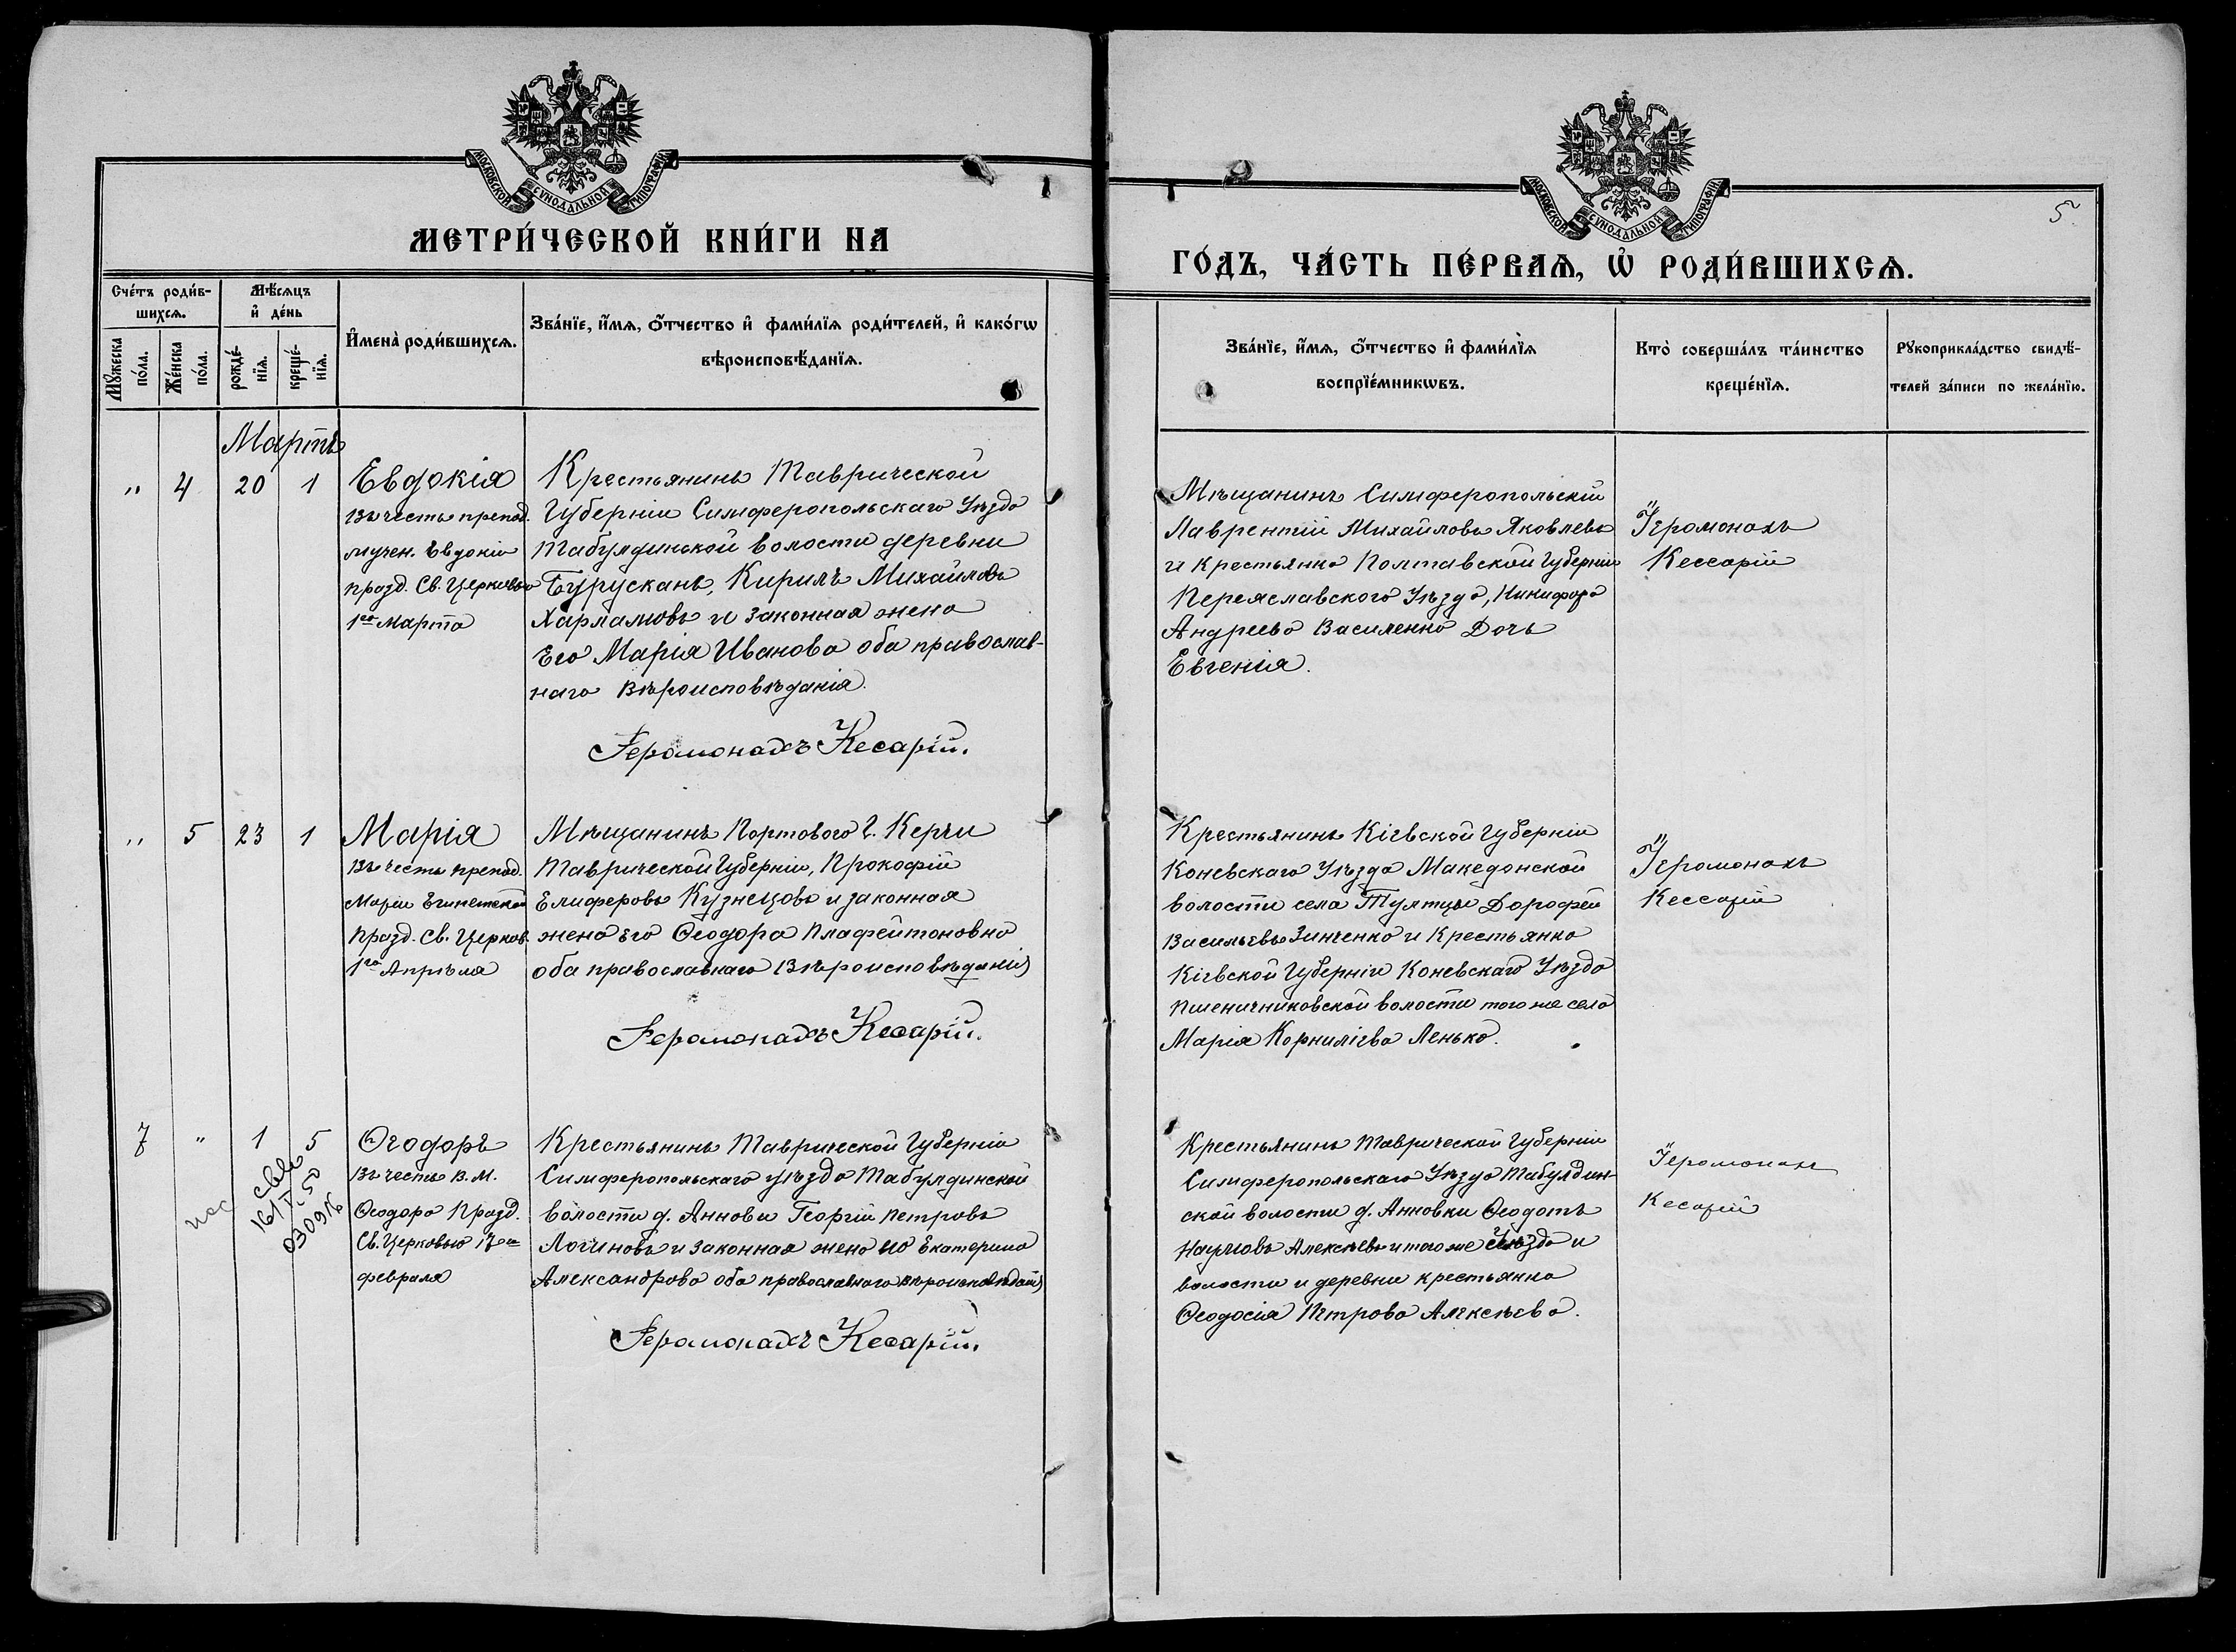 МОСКОВСКОЙ СѴНОДАЛЬНОЙ ТИПОГРАФІИ
МЕТРИ́ЧЕСКОЙ КНИ́ГИ НА
Сче́тъ роди́в-
шихсѧ.
Мѣ́сѧцъ
и҆ де́нь
Мꙋ́жеска
по́ла.
Же́нска
по́ла.
рожде́-
нїѧ.
креще́-
нїѧ.
И҆мена̀ роди́вшихсѧ.
Зва́нїе, и҆́мѧ, ѻ҆́тчество и҆ фами́лїѧ роди́телей, и҆ како́гѡ
вѣроисповѣ́данїѧ.
Мартъ
" 4 20 1
Евдокія
Въ честь препод.
мучен. Евдокіи
празд. Св. Церковью
1го Марта
Крестьянинъ Таврической
Губерніи Симферопольскаго Уѣзда
Табулдинской волости деревни
Бурусканъ, Кирилъ Михайловъ
Харламовъ и законная жена
Его Марія Иванова оба православ-
наго Вѣроисповѣданія.
Іеромонахъ Кесарій.
" 5 23 1
Марія
Въ честь препод.
Маріи Египетской
празд. Св. Церков.
1го Апрѣля
Мѣщанинъ Портового г. Керчи
Таврической Губерніи, Прокофій
Елиферовъ Кузнецовъ и законная
жена Его Ѳеодора Плафейтоновна
оба православнаго Вѣроисповѣданія
Іеромонахъ Кесарій.
7 " 1 5
16/V 50
030916
Ѳеодоръ
Въ честь В. М.
Ѳеодора Празд.
Св. Церковью 17го
февраля
Крестьянинъ Таврической Губерніи
Симферопольскаго уѣзда Табулдинской
волости д. Анновки Георгій Петровъ
Логиновъ и законная жена его Екатерина
Александрова оба православнаго вѣроисповѣданія
Іеромонахъ Кесарій.
МОСКОВСКОЙ СѴНОДАЛЬНОЙ ТИПОГРАФІИ
5
ГО́ДЪ, ЧА́СТЬ ПЕ́РВАѦ, Ѡ҆ РОДИ́ВШИХСѦ.
Зва́нїе, и҆́мѧ, ѻ҆́тчество и҆ фами́лїѧ
воспрїе́мникѡвъ.
Кто̀ соверша́лъ та́инство
креще́нїѧ.
Рꙋкоприкла́дство свидѣ́-
телей за́писи по жела́нїю.
Мѣщанинъ Симферопольскій
Лаврентій Михайловъ Яковлевъ
и крестьянка Полтавской Губерніи
Переяславского Уѣзда, Никифора
Андреева Василенко Дочь
Евгенія.
Іеромонахъ
Кессарій
Крестьянинъ Кіевской Губерніи
Коневскаго Уѣзда Македонской
волости села Тулитцы Дорофей
Васильевъ Зинченко и Крестьянка
Кіевской Губерніи Коневскаго Уѣзда
Пшеничниковской волости того же села
Марія Корниліева Ленько.
Іеромонахъ
Кессарій
Крестьянинъ Таврической Губерніи
Симферопольскаго Уѣзда Табулдин-
ской волости д. Анновки Ѳеодотъ
Наумовъ Алексѣевъ и того же Уѣзда и
волости и деревни крестьянка
Ѳеодосія Петрова Алексѣева.
Іеромонахъ
Кесарій